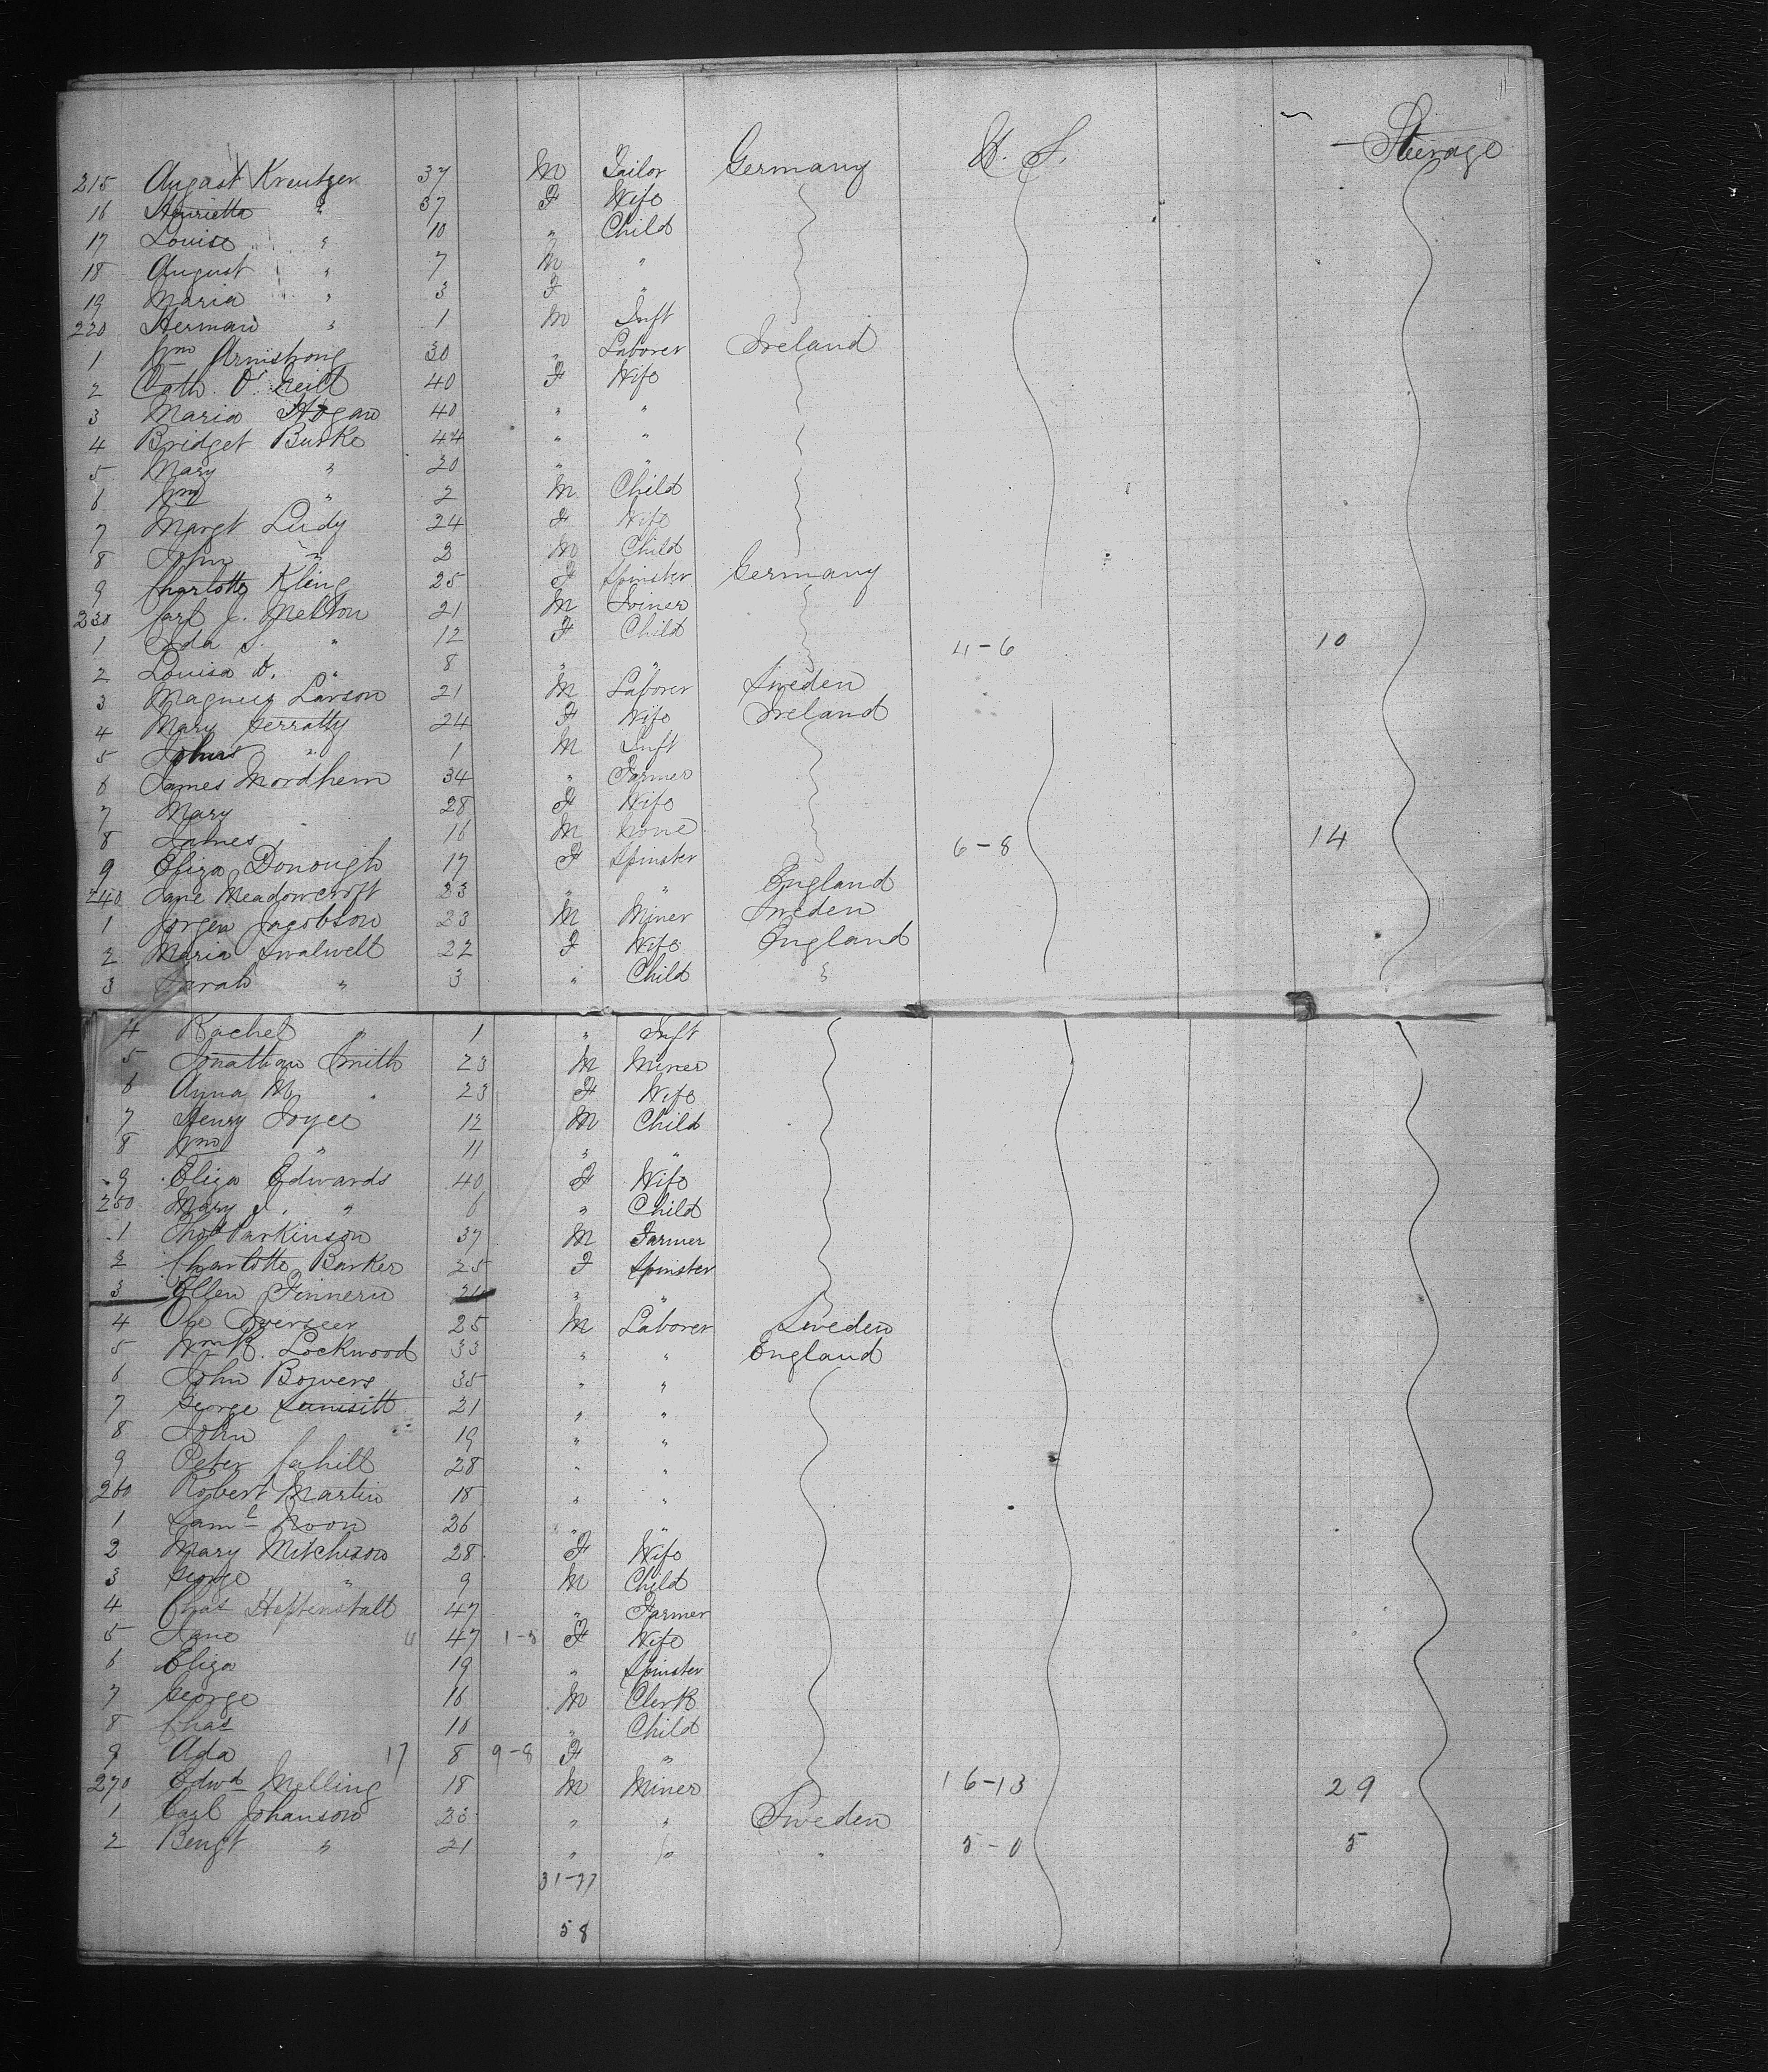 Steerage
215 August Kreutzer 37 M Tailor Germany U. S.
16 Henrietta " 37 F Wife
17 Louise " 10 " Child
18 August " 7 M "
19 Maria " 3 F "
220 Herman " 1 M Inft
1 Wm Armstrong 30 " Laborer Ireland
2 Cath. O'Neill 40 F Wife
3 Maria Hogan 40 " "
4 Bridget Burke 44 " "
5 Mary " 20 " "
6 Wm " 2 M Child
7 Margt Lidy 24 F Wife
8 John " 2 M Child
9 Charlotte Kling 25 F Spinster Germany
230 Carl J. Melton 21 M Joiner
1 Ida S. " 12 F Child 4-6 10
2 Louisa D. " 8 " "
3 Magnus Larson 21 M Laborer Sweden
4 Mary Gerratty 24 F Wife Ireland
5 John " 1 M Inft
6 James Mordhem 34 " Farmer
7 Mary 28 F Wife
8 James 16 M None 6-8 14
9 Eliza Donough 17 F Spinster
240 Jane Meadowcroft 23 " " England
1 Jorgen Jacobson 23 M Miner Sweden
2 Maria Swalwell 22 F Wife England
3 Sarah " 3 " Child "
4 Rachel " 1 " Inft
5 Jonathan Smith 23 M Miner
6 Anna M. " 23 F Wife
7 Henry Joyce 12 M Child
8 Wm " 11 " "
9 Eliza Edwards 40 F Wife
250 Mary J. " 6 " Child
1 Thos Parkinson 37 M Farmer
2 Charlotte Barker 25 F Spinster
3 Ellen Finnern 21 " "
4 Ole Iverseer 25 M Laborer Sweden
5 Wm R. Lockwood 33 " " England
6 John Bowers 35 " "
7 George 21 " "
8 John " 19 " "
9 Peter Cahill 28 " "
260 Robert Martin 18 " "
1 Saml Noon 26 " "
2 Mary Mitchison 28 F Wife
3 George " 9 M Child
4 Chas Heptenstall 47 " Farmer
5 Jane 11 47 1-8 F Wife
6 Eliza 19 " Spinster
7 George 16 M Clerk
8 Chas 10 " Child
9 Ada 17 8 9-8 F "
270 Edwd Melling 18 M Miner 16-13 29
1 Carl Johanson 23 " " Sweden
2 Bengt " 21 " " " 5-0 5
31-27
58